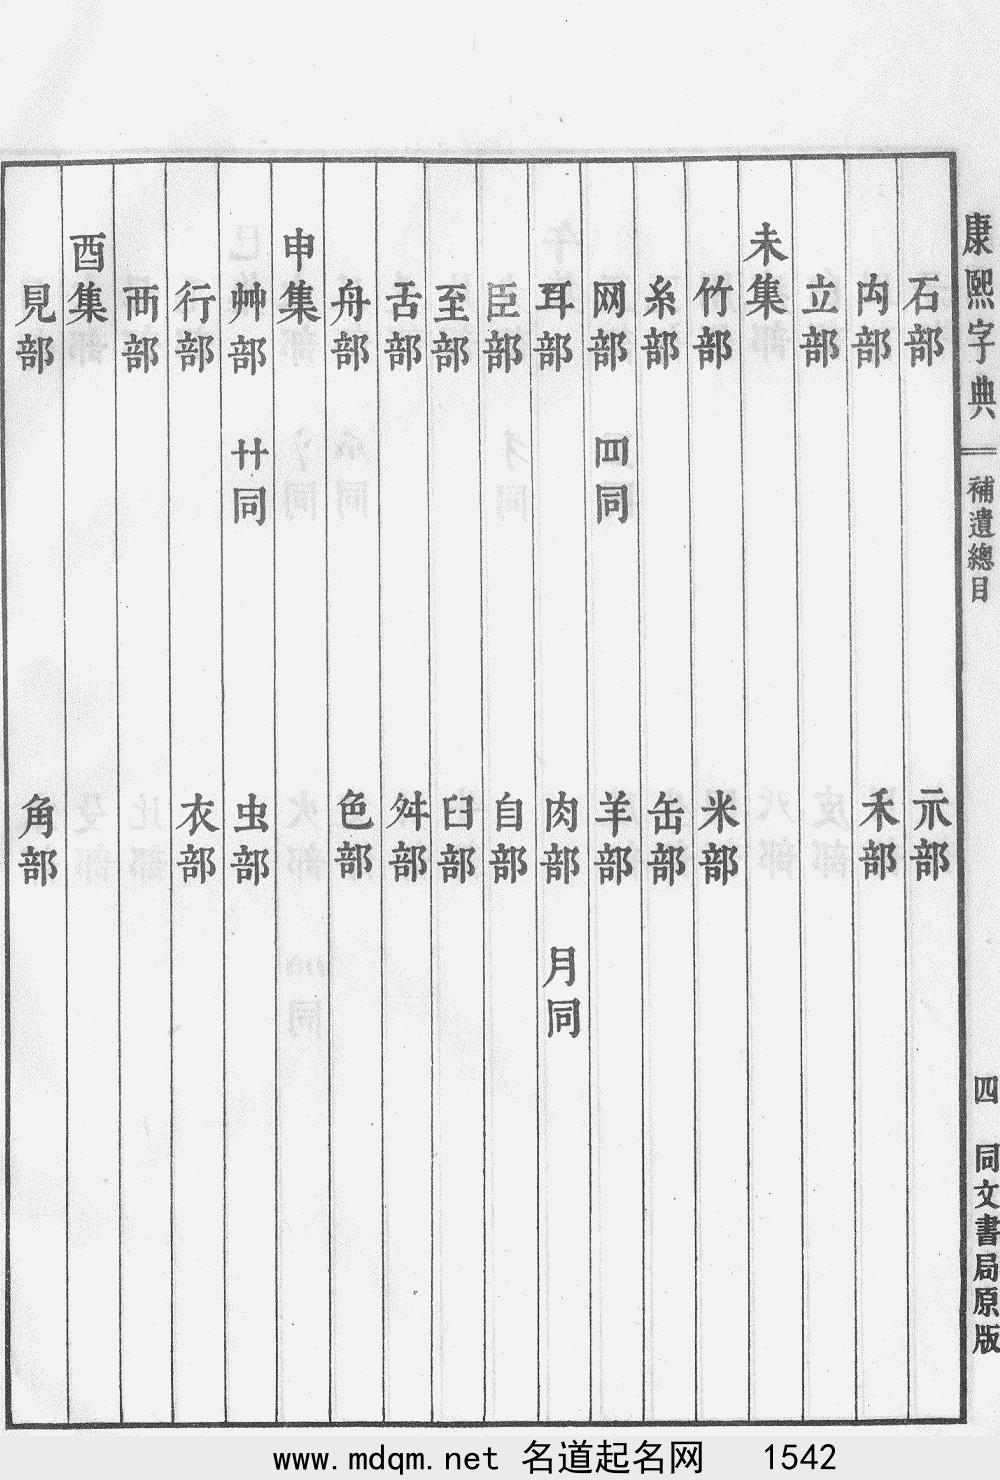 康熙字典 補遺總目 四 同文書局原版
石部 示部
禸部 禾部
立部
未集
竹部 米部
糸部 缶部
网部 罒同 羊部
耳部 肉部 月同
臣部 自部
至部 臼部
舌部 舛部
舟部 色部
申集
艸部 卄同 虫部
行部 衣部
襾部
酉集
見部 角部
www.mdqm.net 名道起名网 1542